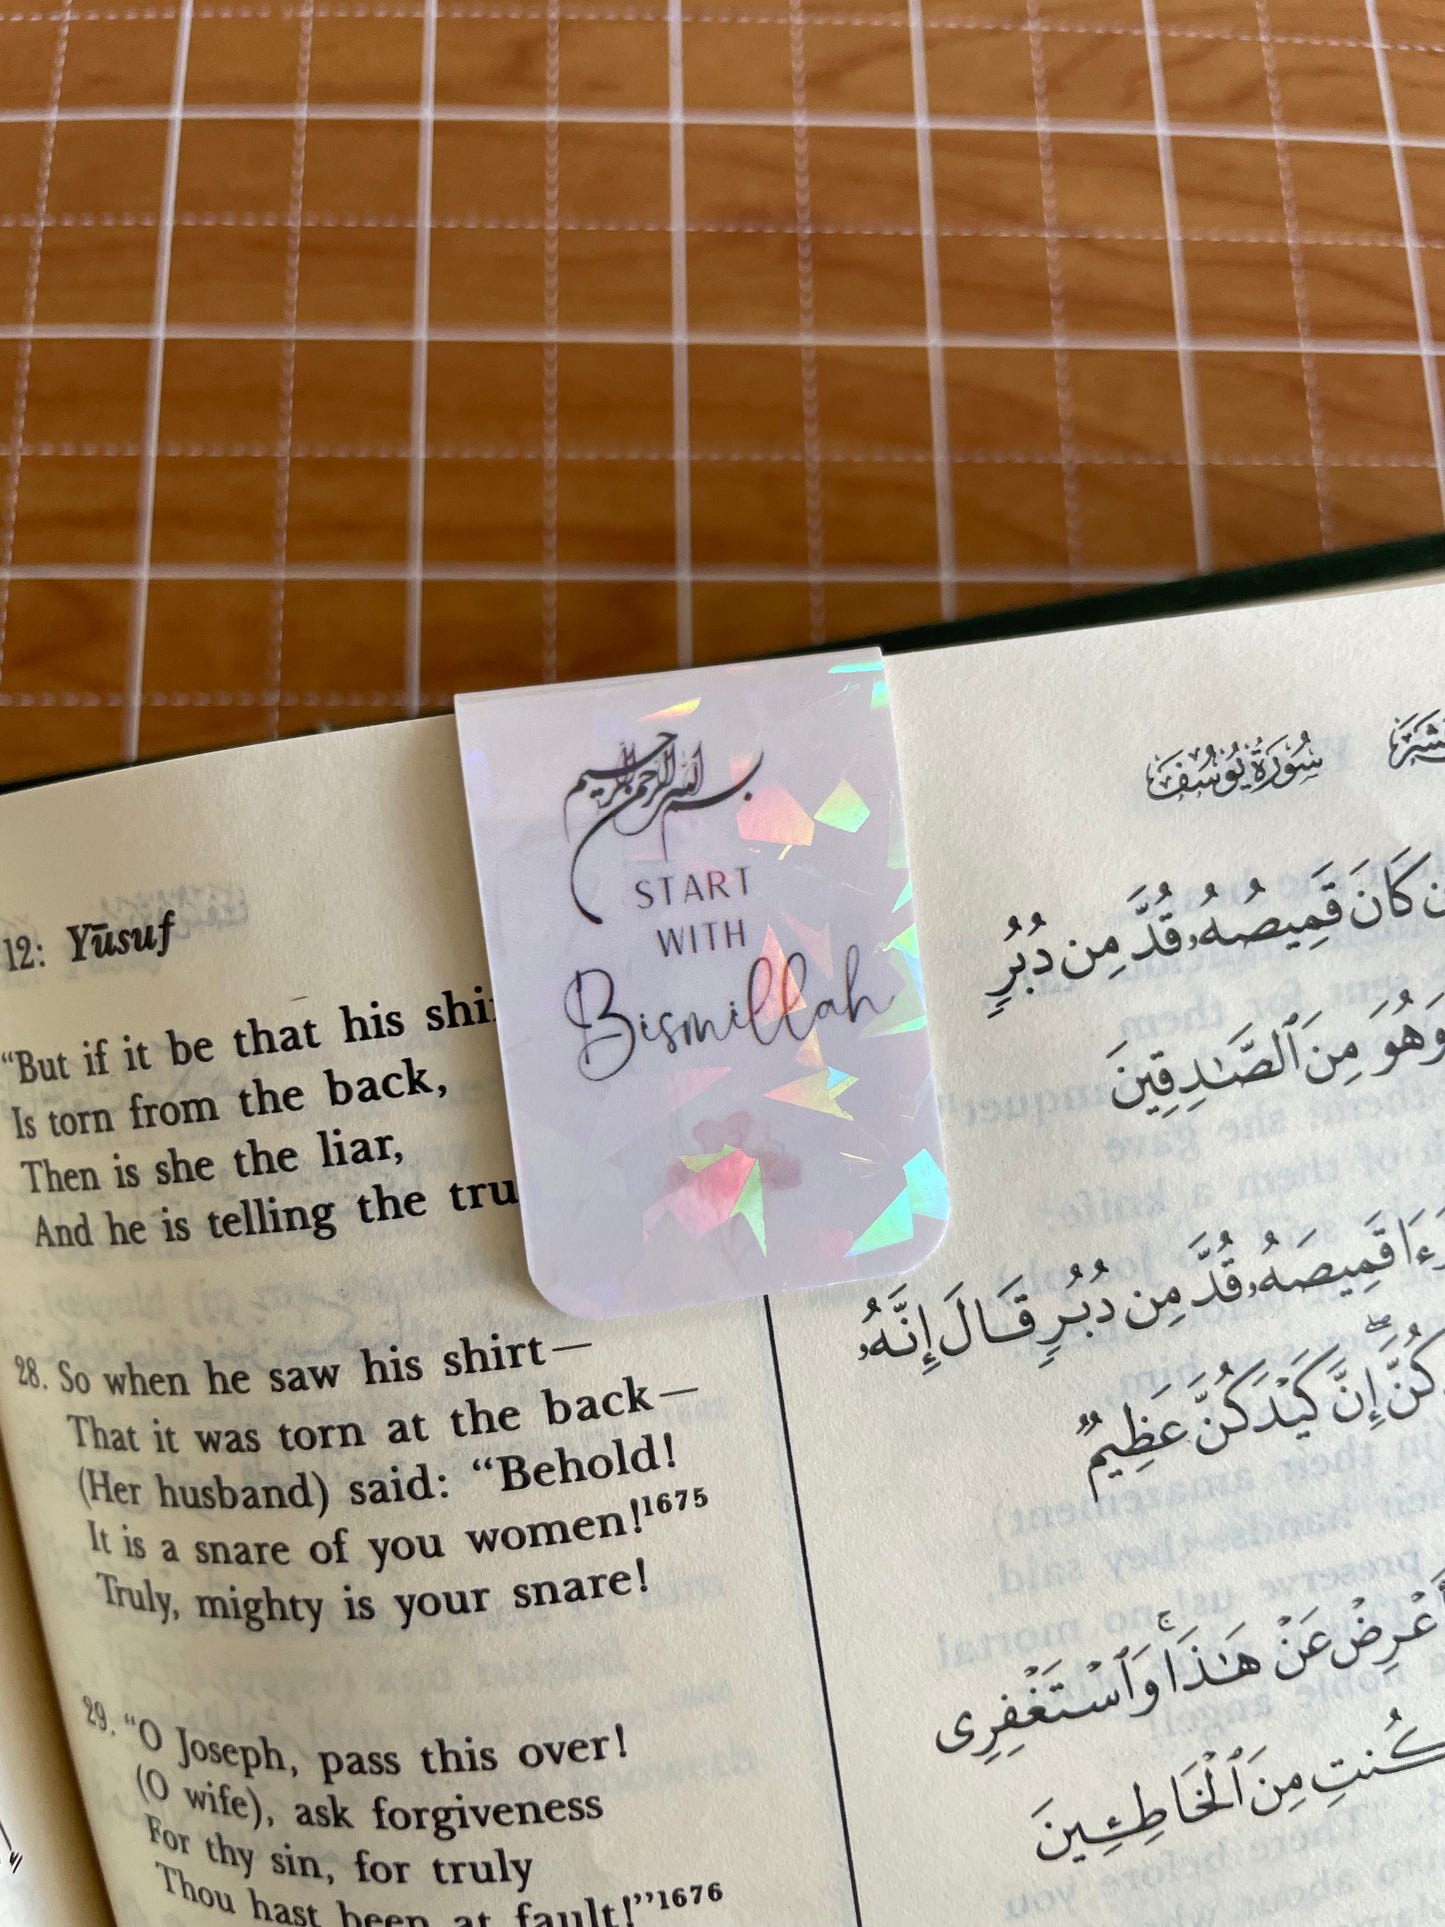 12: Yūsuf
"But if it be that his
Is torn from the back,
Then is she the liar,
And he is telling the
28. So when he saw his shirt—
That it was torn at the back—
(Her husband) said: "Behold!
It is a snare of you women!1675
Truly, mighty is your snare!
29. "O Joseph, pass this over!
(O wife), ask forgiveness
For thy sin, for truly
Thou hast been at fault!"1676
بسم الله الرحمن الرحيم
START
WITH
Bismillah
سُورَةُ يُوسُفَ
كَانَ قَمِيصُهُۥ قُدَّ مِن دُبُرٍ
وَهُوَ مِنَ ٱلصَّـٰدِقِينَ
قَمِيصَهُۥ قُدَّ مِن دُبُرٍ قَالَ إِنَّهُۥ
كُنَّ ۖ إِنَّ كَيْدَكُنَّ عَظِيمٌ
أَعْرِضْ عَنْ هَـٰذَا ۚ وَٱسْتَغْفِرِى
كُنتِ مِنَ ٱلْخَاطِـِٔينَ